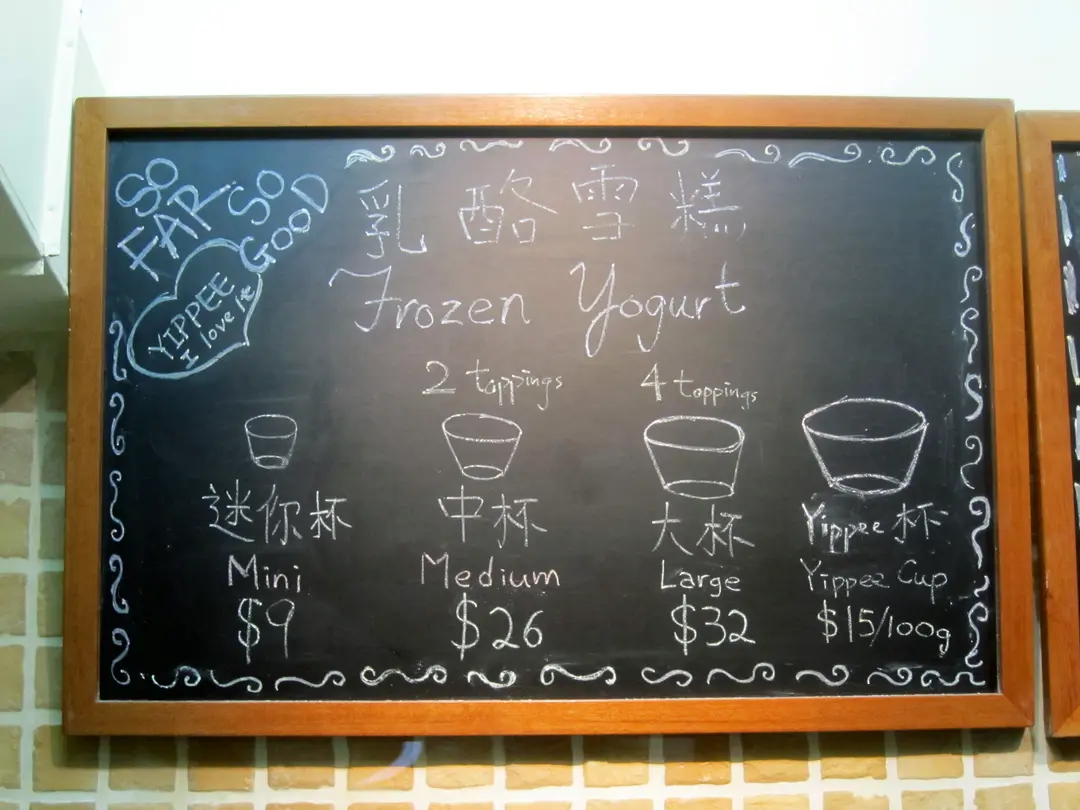 SO FAR SO GOOD
YIPPEE
I love it
乳酪雪糕
Frozen Yogurt
2 toppings
4 toppings
迷你杯
中杯
大杯
Yippee 杯
Mini
Medium
Large
Yippee Cup
$9
$26
$32
$15/100g